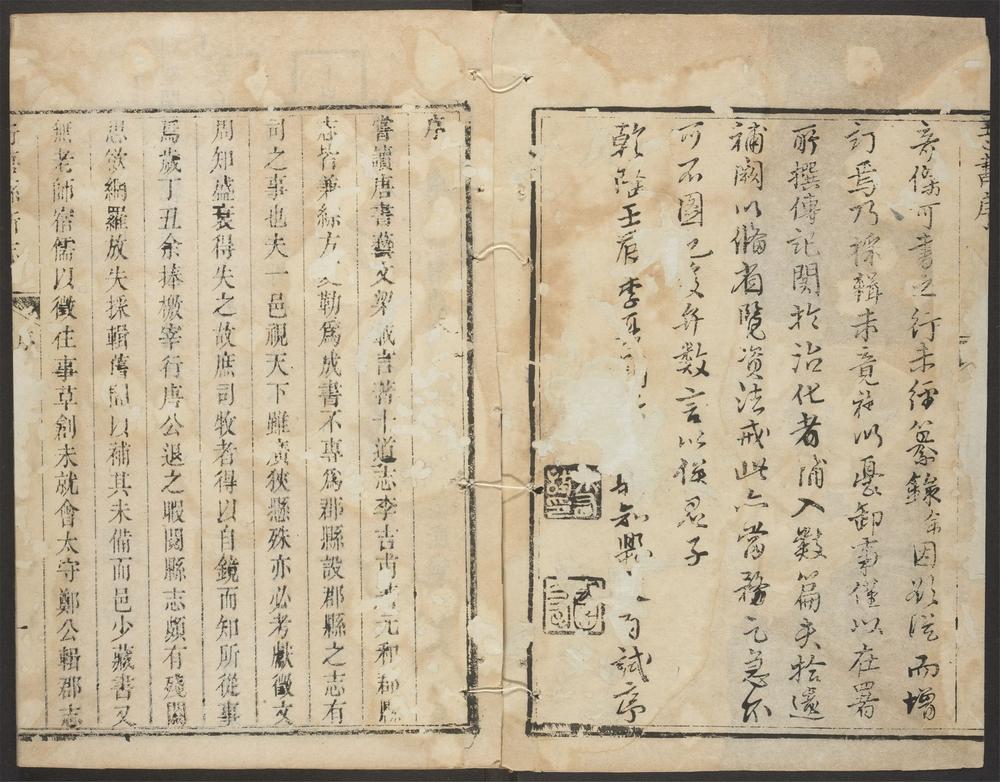 彥條可書之行未經纂錄余因欲從而增
訂焉乃採輯未竟旋以憂卸事僅以在署
所撰傳記関於治化者補入數篇夫拾遺
補闕以俻省覽資法戒此亦當務之急不
可不圖也爰弁數言以俟君子
乾隆壬辰季夏 知興 司試序
序
嘗讀唐書藝文梁載言著十道志李吉甫著元和郡縣
志皆兼綜方 勒爲成書不專爲郡縣設郡縣之志有
司之事也夫一邑視天下雖廣狹懸殊亦必考獻徵文
周知盛衰得失之故庶司牧者得以自鏡而知所從事
焉歲丁丑余捧檄宰行唐公退之暇閱縣志頗有殘闕
思欲網羅放失採輯舊聞以補其未備而邑少藏書又
無老師宿儒以徵往事草創未就會太守鄭公輯郡志
行唐縣新志
序